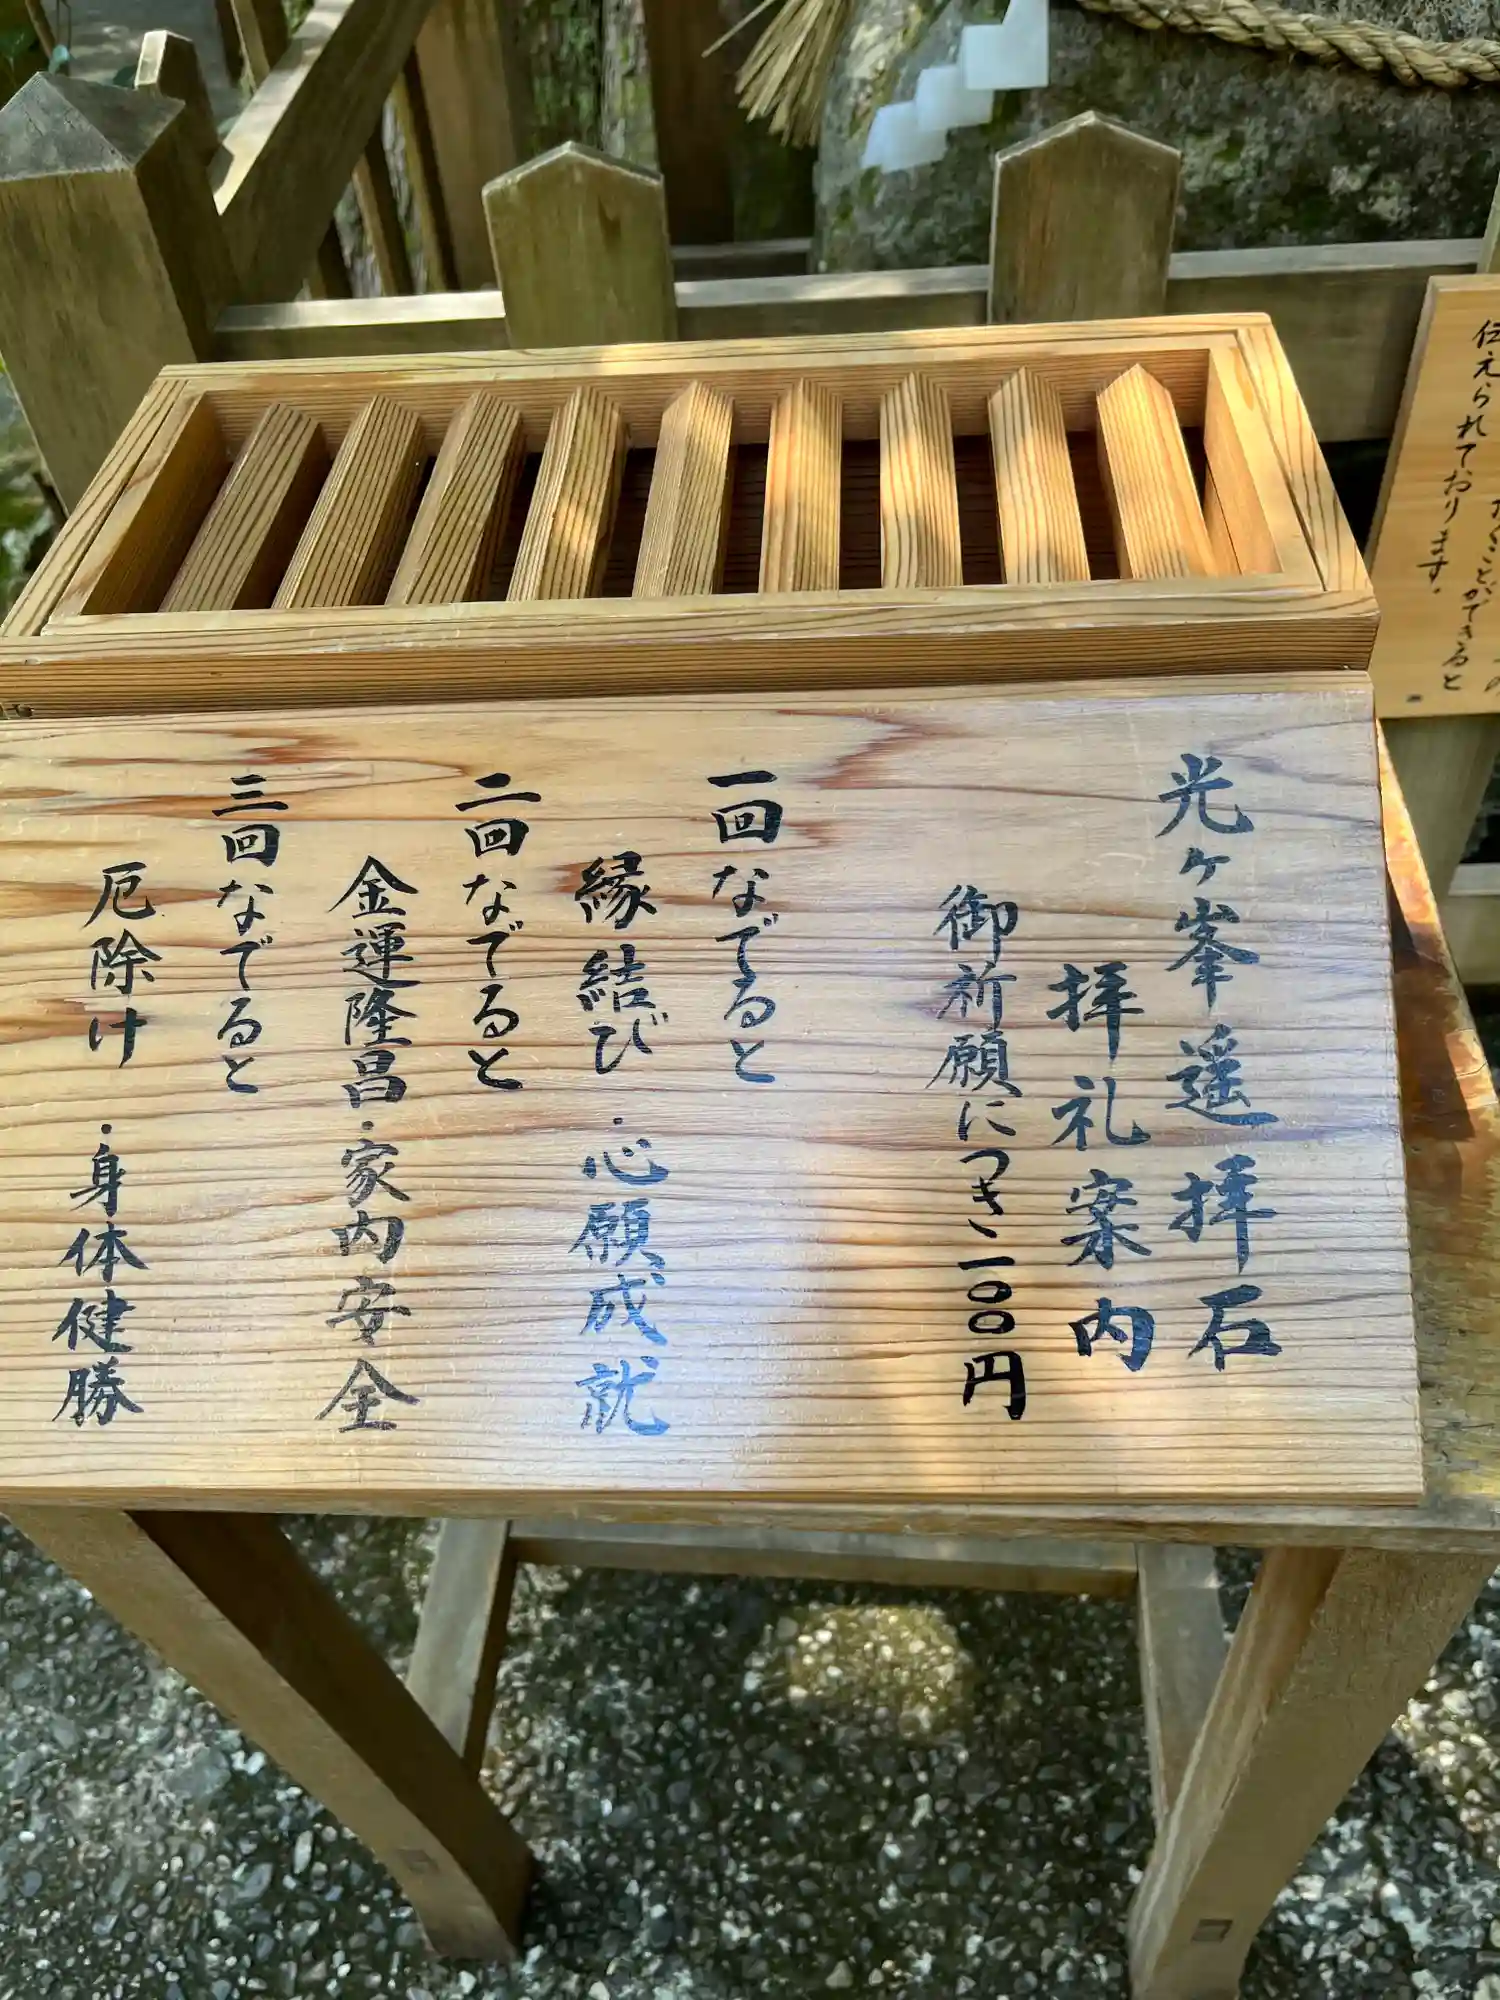 光ヶ峯遥拝石
拝礼案内
御祈願につき一〇〇円
一回なでると
縁結び・心願成就
二回なでると
金運隆昌・家内安全
三回なでると
厄除け・身体健勝
ことができると
伝えられております。